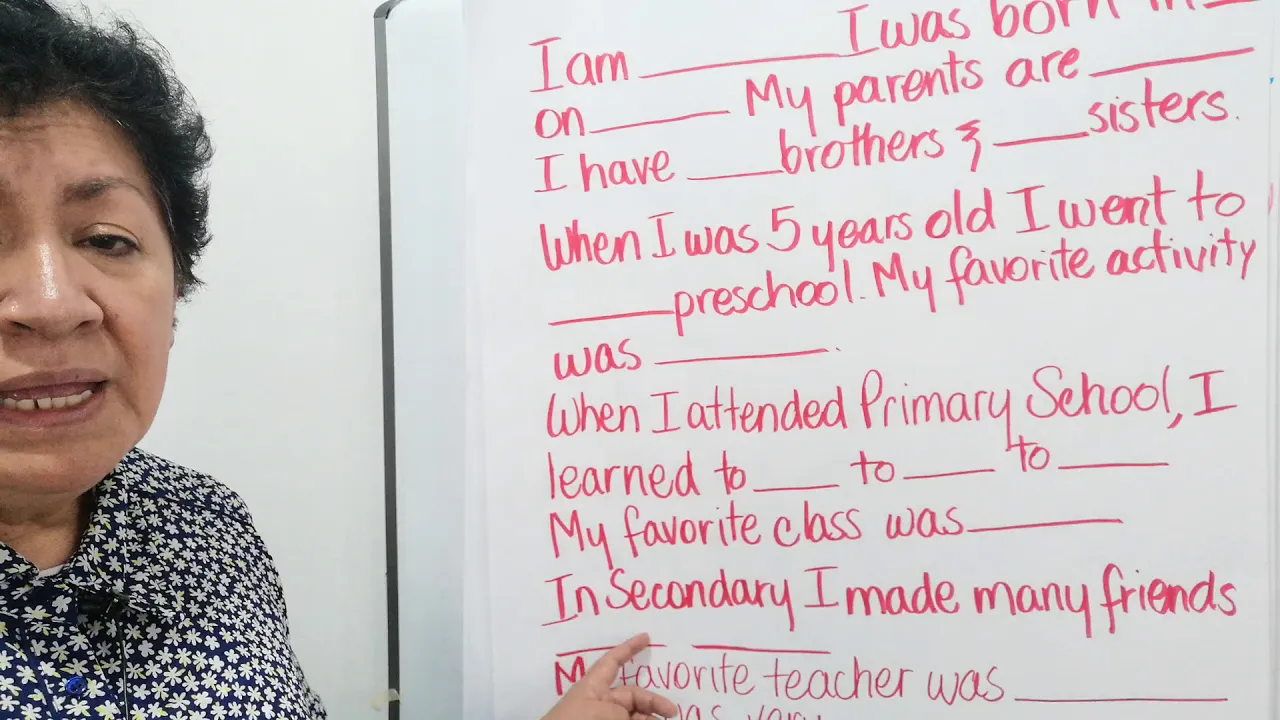 I am ________ I was born in __
on ______ My parents are ________
I have ____ brothers & ____ sisters.
When I was 5 years old I went to
______ preschool. My favorite activity
was ________.
When I attended Primary School, I
learned to ____ to ____ to _____
My favorite class was ________
In Secondary I made many friends
______ ________
My favorite teacher was __________
was very